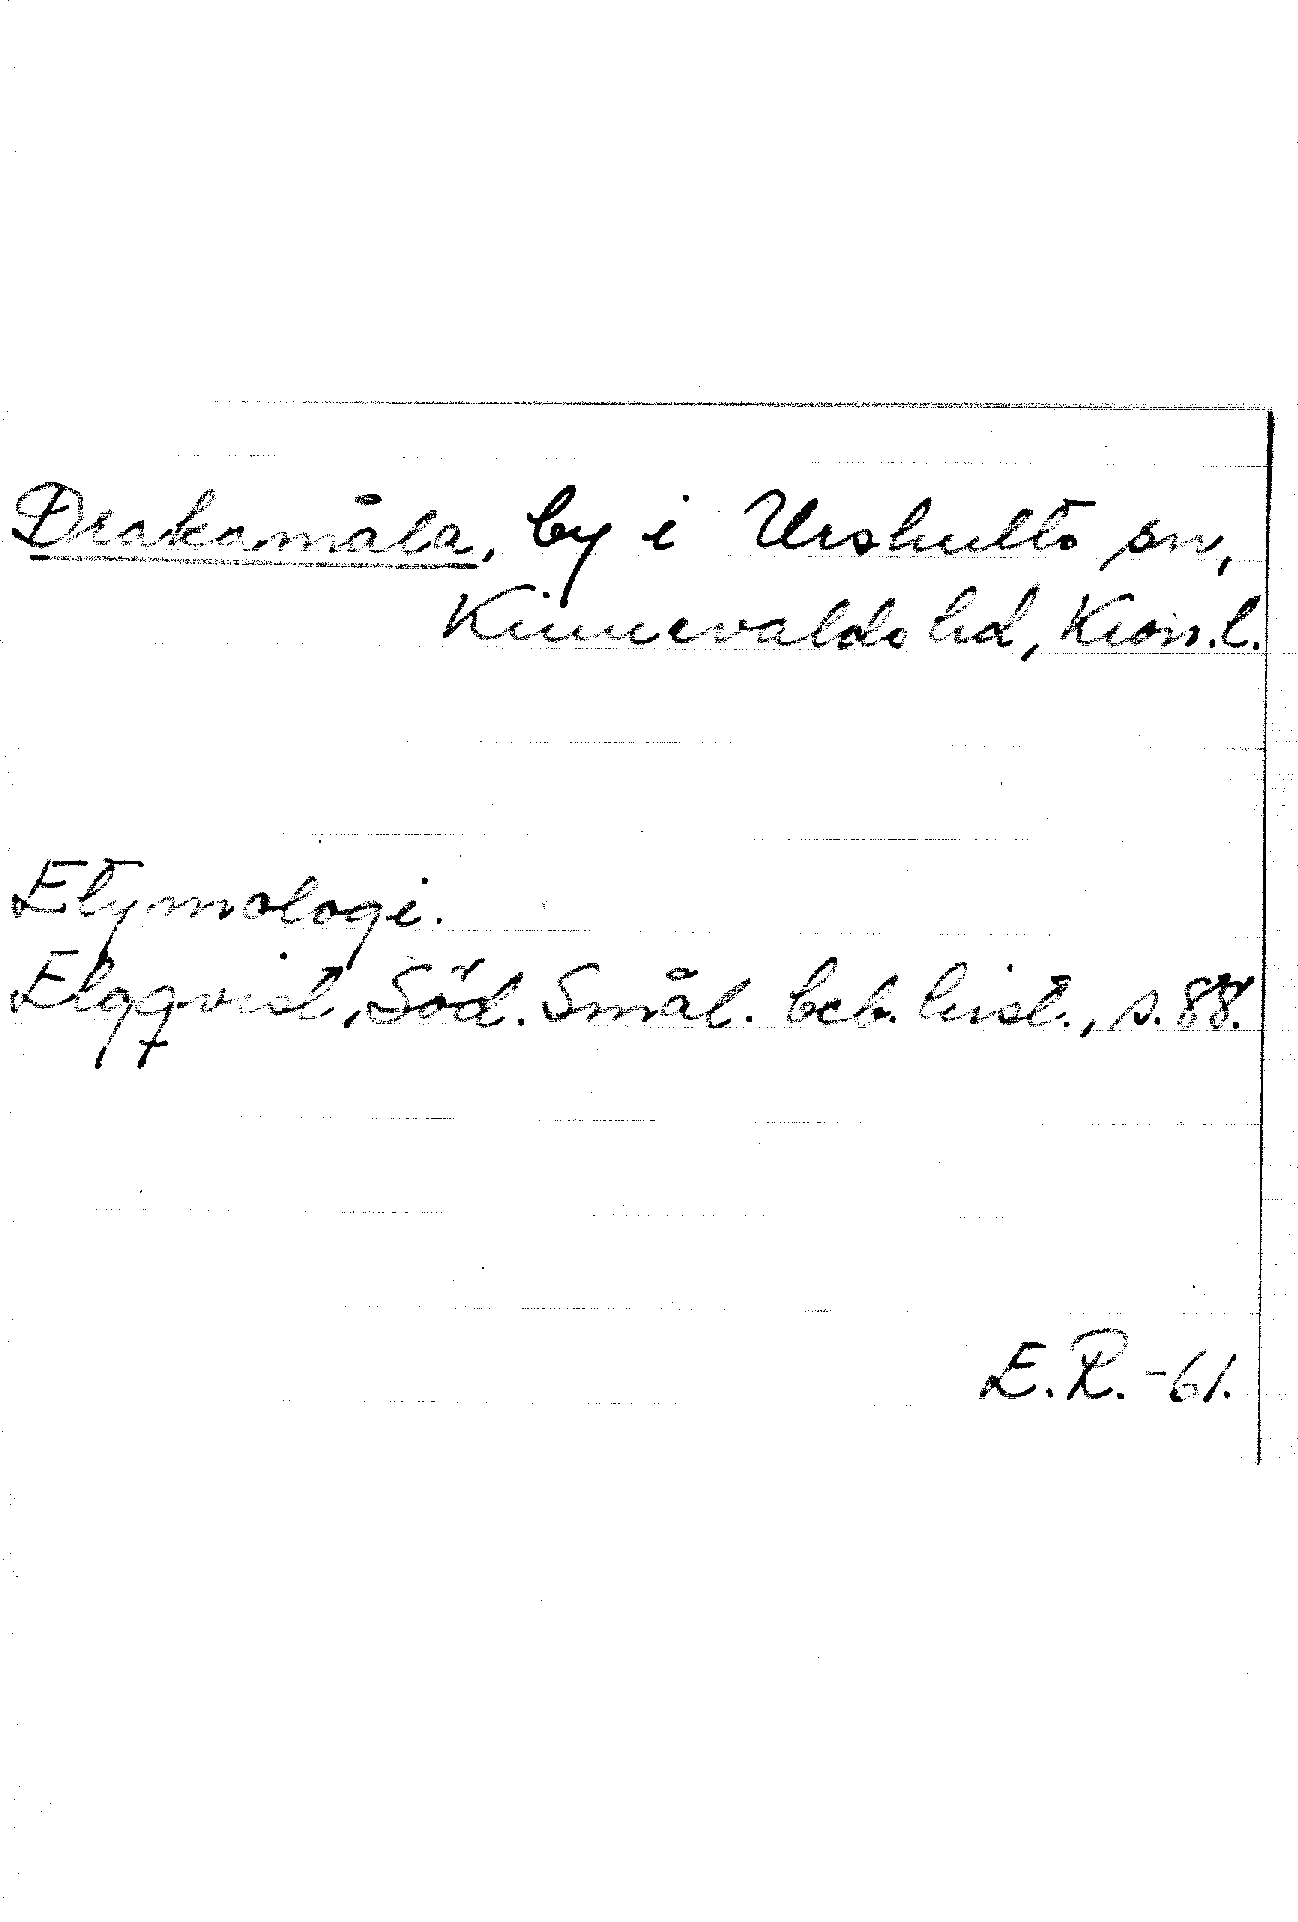 Drakamåla, by i Urshults sn,
Kinnevalds hd, Kron.l.
Etymologi.
Elgqvist, Söd. Smål. beb. hist., s. 88.
E.R. -61.